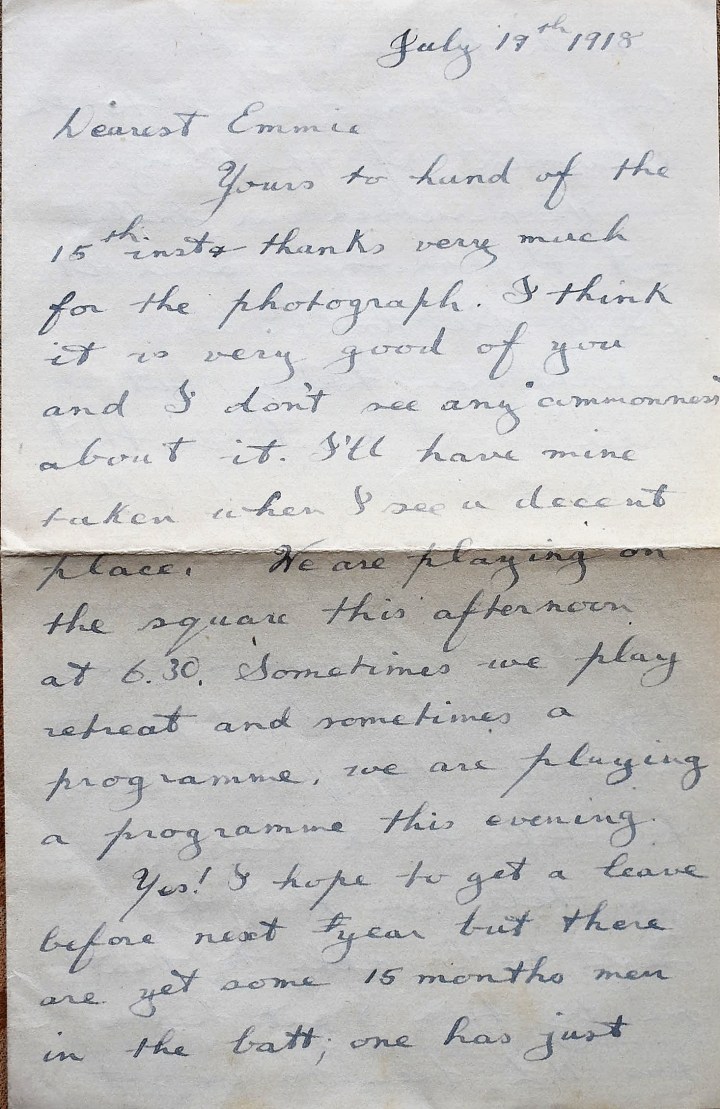 July 19th 1918
Dearest Emmie
Yours to hand of the
15th inst & thanks very much
for the photograph. I think
it is very good of you
and I don't see any "commonness"
about it. I'll have mine
taken when I see a decent
place. We are playing on
the square this afternoon
at 6.30. Sometimes we play
retreat and sometimes a
programme, we are playing
a programme this evening.
Yes! I hope to get a leave
before next year but there
are yet some 15 months men
in the batt; one has just